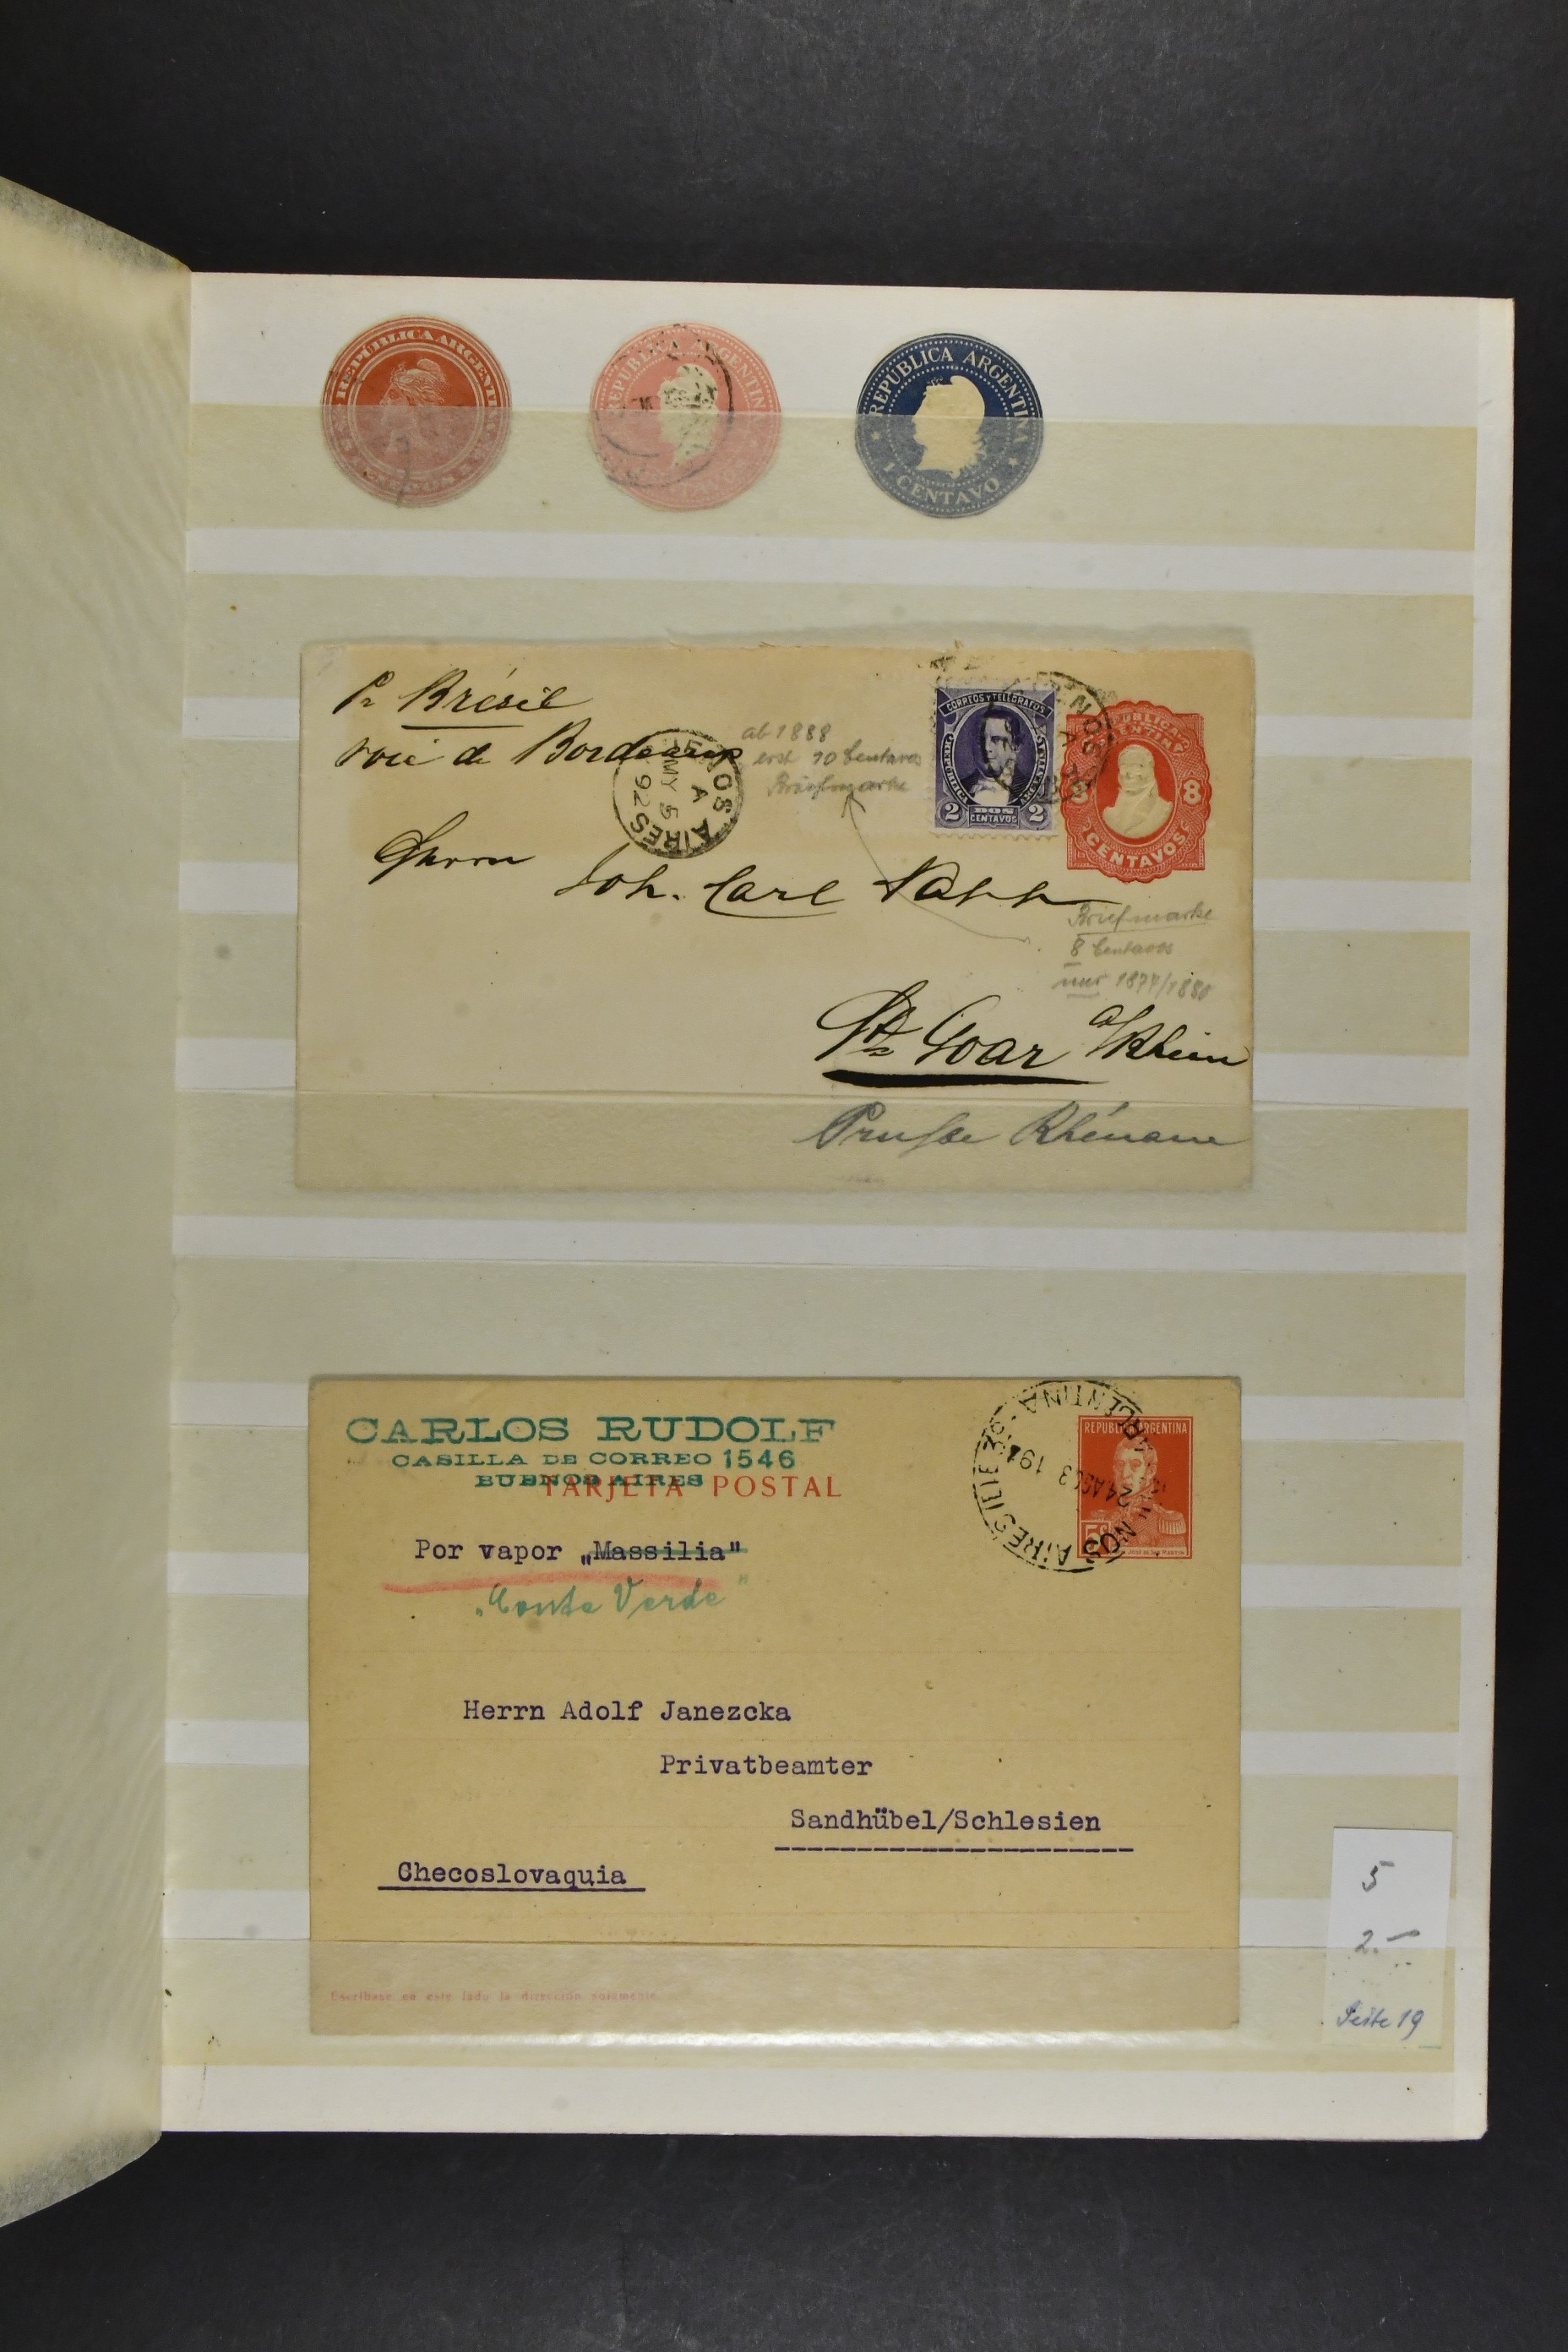 REPUBLICA ARGENTINA
REPUBLICA ARGENTIN
REPUBLICA ARGENTINA
1 CENTAVO
Pr Brésil
voie de Bordeaux
ab 1888
erst 10 Centavos
Briefmarke
BUENOS AIRES
A
MY 5
92
CORREOS Y TELEGRAFOS
2 DOS 2
CENTAVOS
8
CENTAVOS
Herrn
Joh. Carl
Briefmarke
8 Centavos
nur
St. Goar a/Rhein
Prusse Rhénane
CARLOS RUDOLF
CASILLA DE CORREO 1546
BUENOS AIRES
TARJETA POSTAL
REPUBLICA ARGENTINA
5c
JOSÉ DE SAN MARTIN
24 AGO
Por vapor „Massilia"
„Conte Verde"
Herrn Adolf Janezcka
Privatbeamter
Sandhübel/Schlesien
Checoslovaquia
Escríbase en este lado la dirección solamente.
5
2.—
Seite 19